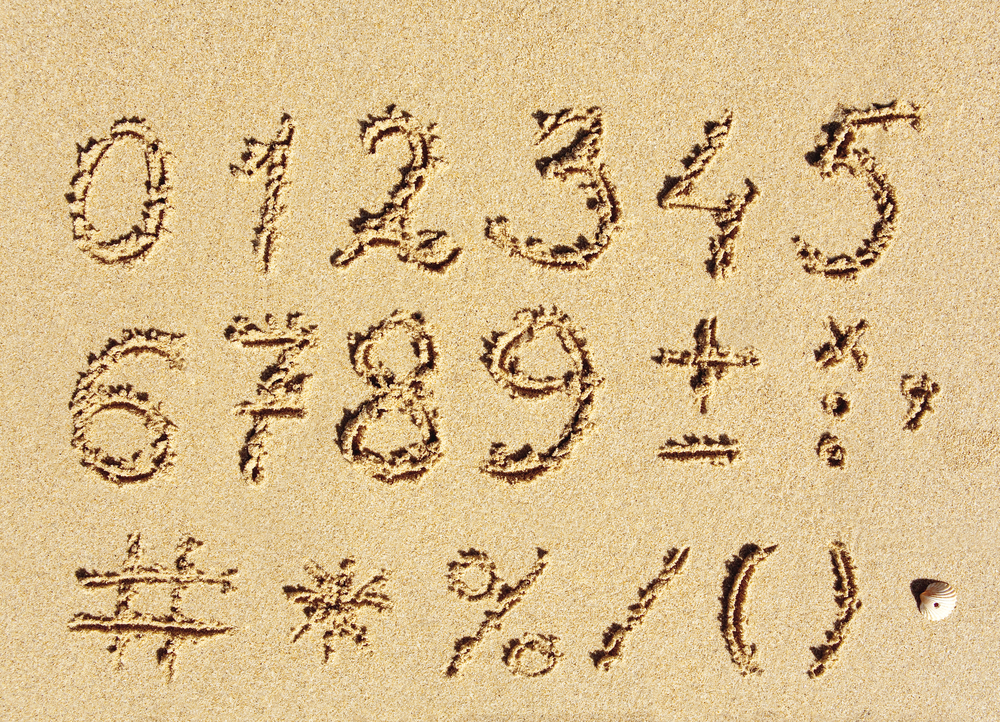 0 1 2 3 4 5
6 7 8 9 + - × : ,
# * % / ( )